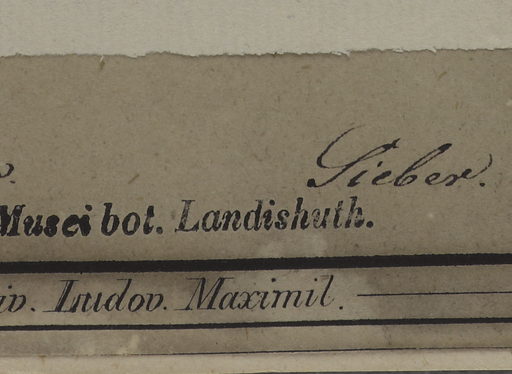 Sieber.
Musei bot. Landishuth.
Ludov. Maximil.